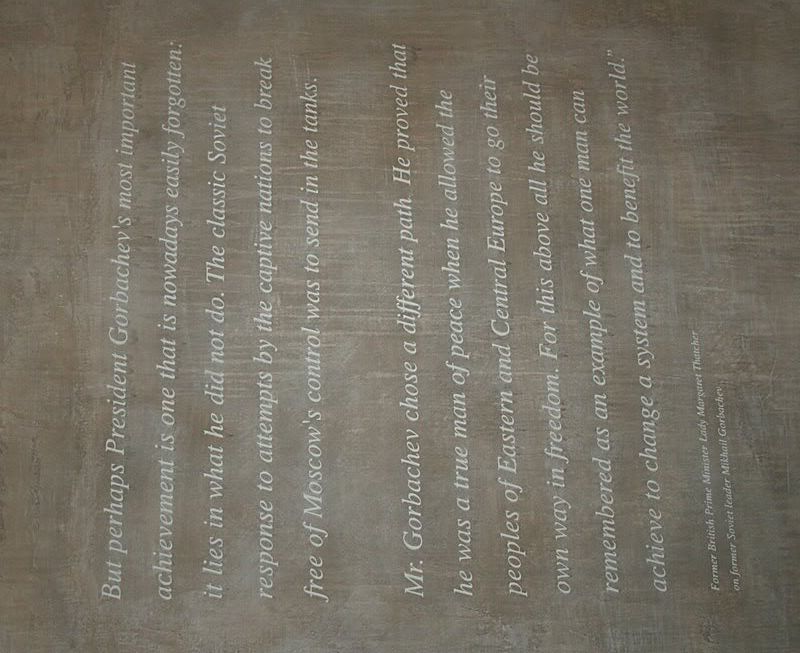 But perhaps President Gorbachev's most important
achievement is one that is nowadays easily forgotten:
it lies in what he did not do. The classic Soviet
response to attempts by the captive nations to break
free of Moscow's control was to send in the tanks.
Mr. Gorbachev chose a different path. He proved that
he was a true man of peace when he allowed the
peoples of Eastern and Central Europe to go their
own way in freedom. For this above all he should be
remembered as an example of what one man can
achieve to change a system and to benefit the world.”
Former British Prime Minister Lady Margaret Thatcher
on former Soviet leader Mikhail Gorbachev